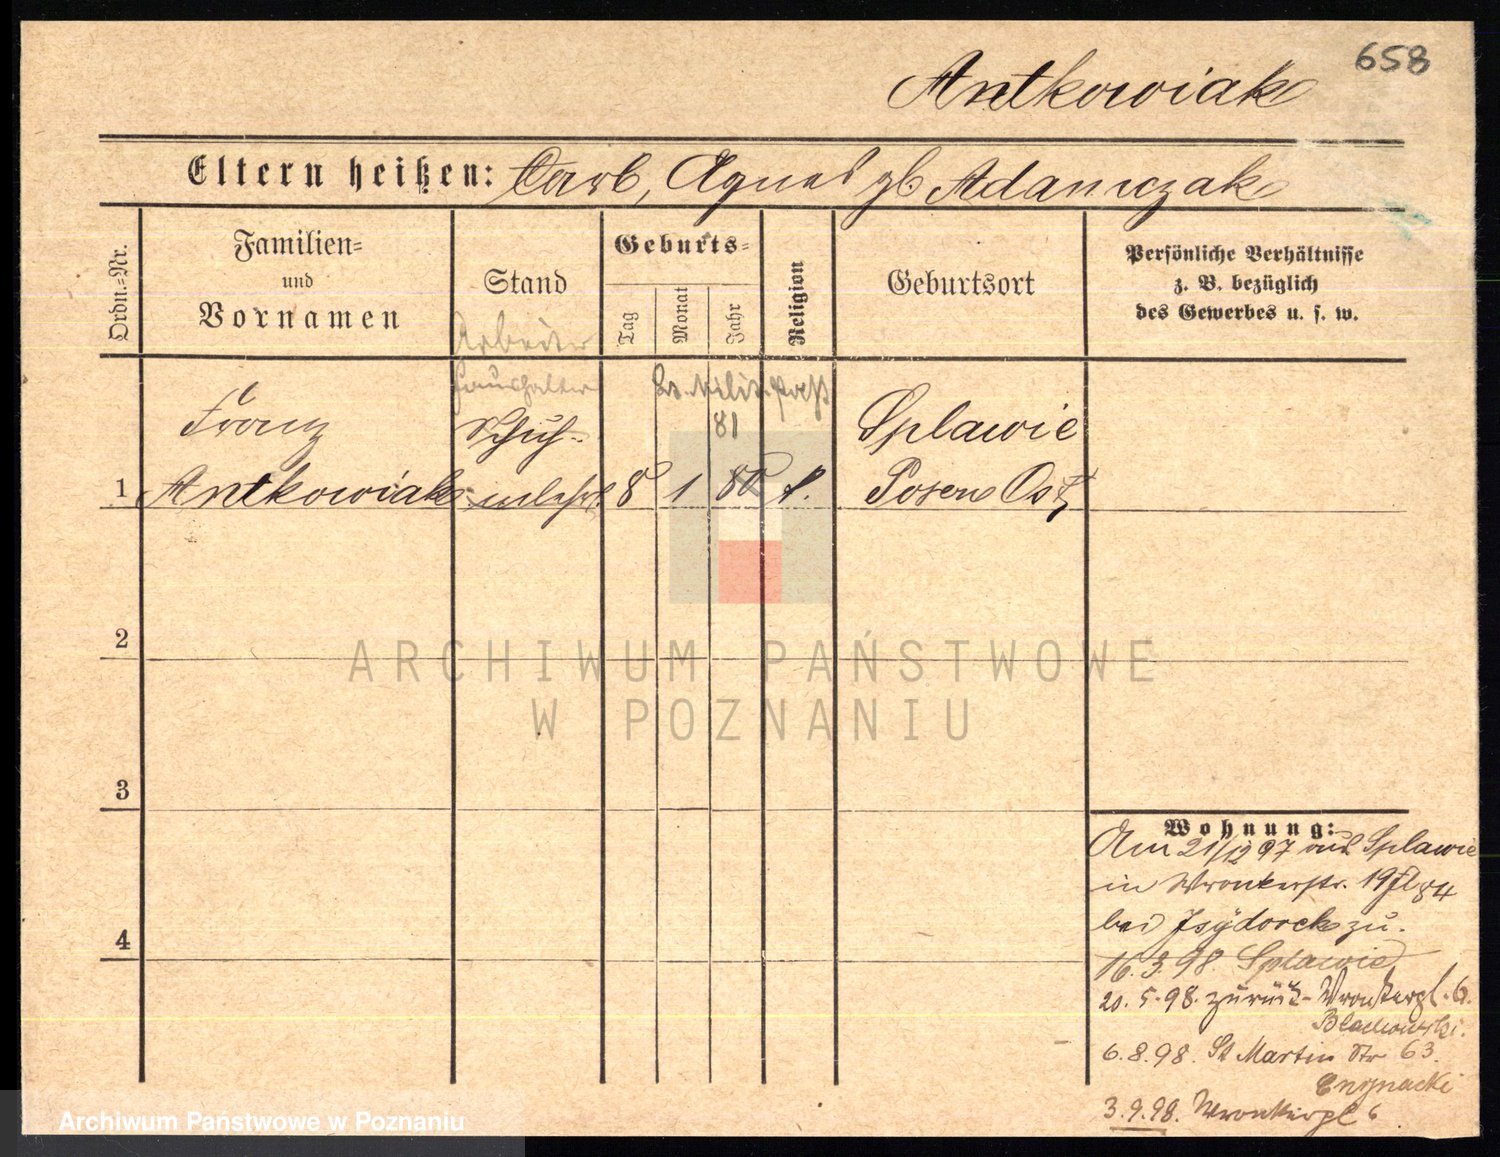 658
Antkowiak
Eltern heißen: Carl, Agnes gb Adamczak
Ordn.-Nr.
Familien-
und
Vornamen
Stand
Geburts-
Tag
Monat
Jahr
Religion
Geburtsort
Persönliche Verhältnisse
z. B. bezüglich
des Gewerbes u. s. w.
Arbeiter
Haushälter
Ls. Milit. Paß
81
1
Franz
Antkowiak
Schuh-
8 1 80
Splawie
Posen Ost
2
3
4
Wohnung:
Am 21/12 97 aus Splawie
in Wronkerstr. 19
bei Isydorek zu.
16.3.98. Splawie
20.5.98. zurück - Wronkerpl. 6.
6.8.98. St Martin Str 63.
3.9.98. Wronkerpl 6
ARCHIWUM PAŃSTWOWE
W POZNANIU
Archiwum Państwowe w Poznaniu